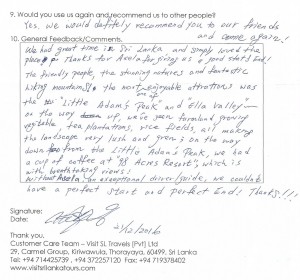 9. Would you use us again and recommend us to other people!!
Yes, we would definitely recommend you to our friends
and come again!
10. General Feedback/Comments.
We had great time in Sri Lanka and simply loved the
place. Thanks for Asela for giving us a good start & end!
The friendly people, the stunning natures and fantastic
hiking mountains! The most enjoyable attractions was
the "Little Adam's Peak" and "Ella Valley" -
on the way up, we've seen farmland growing
vegitable, tea plantations, rice fields, all making
the landscape very lush and green; on the way
down from the Little Adam's Peak, we had
a cup of coffee at "98 Acres Resort", which is
with breathtaking views!
Without Asela, an exceptional driver/guide, we couldn't
have a perfect start and perfect End! Thanks!!!
Signature:
Date:
21/12/2016
Thank you,
Customer Care Team – Visit SL Travels (Pvt) Ltd
29, Carmel Group, Kiriwawula, Thorayaya, 60499, Sri Lanka
Tel +94 714425739 , +94 372257120 Fax: +94 719378402
www.visitsrilankatours.com